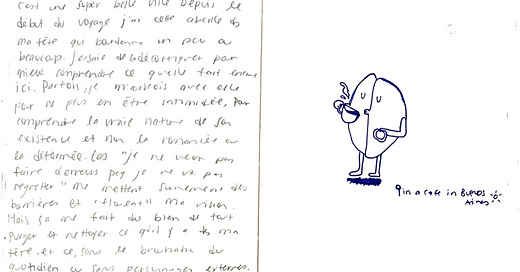 c'est une super belle ville depuis le
début du voyage j'ai cette abeille ds
ma tête qui bourdonne un peu ou
beaucoup. j'essaie de la décortiquer pour
mieux comprendre ce qu'elle fait encore
ici. Parfois, je m'assois avec elle
pour ne plus en être intimidée. Pour
comprendre la vraie nature de son
existence et non la romancée ou
la déformée. Les "je ne veux pas
faire d'erreurs pcq je ne vx pas
regretter" me mettent sûrement des
barrières et "flouent" ma vision.
Mais ça me fait du bien de tout
purger et nettoyer ce qu'il y a ds ma
tête. et ce, sans le brouhaha du
quotidien ou sans personnages externes.
in a café in Buenos
Aires